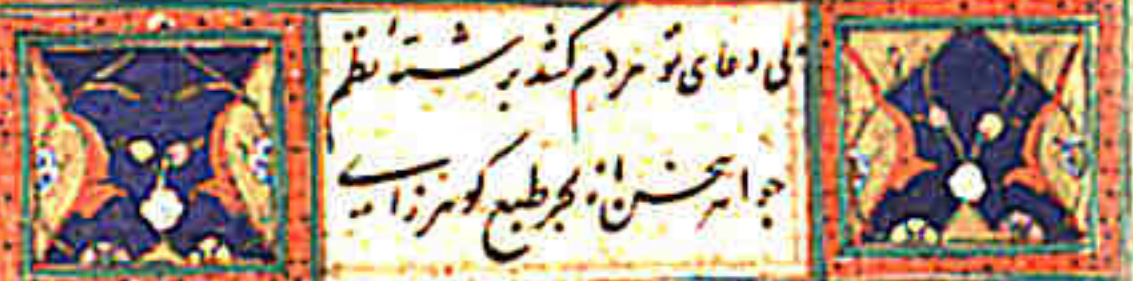 پی دعای تو هر دم کشد برشته نظم
جواهر سخن از بحر طبع گوهرزای